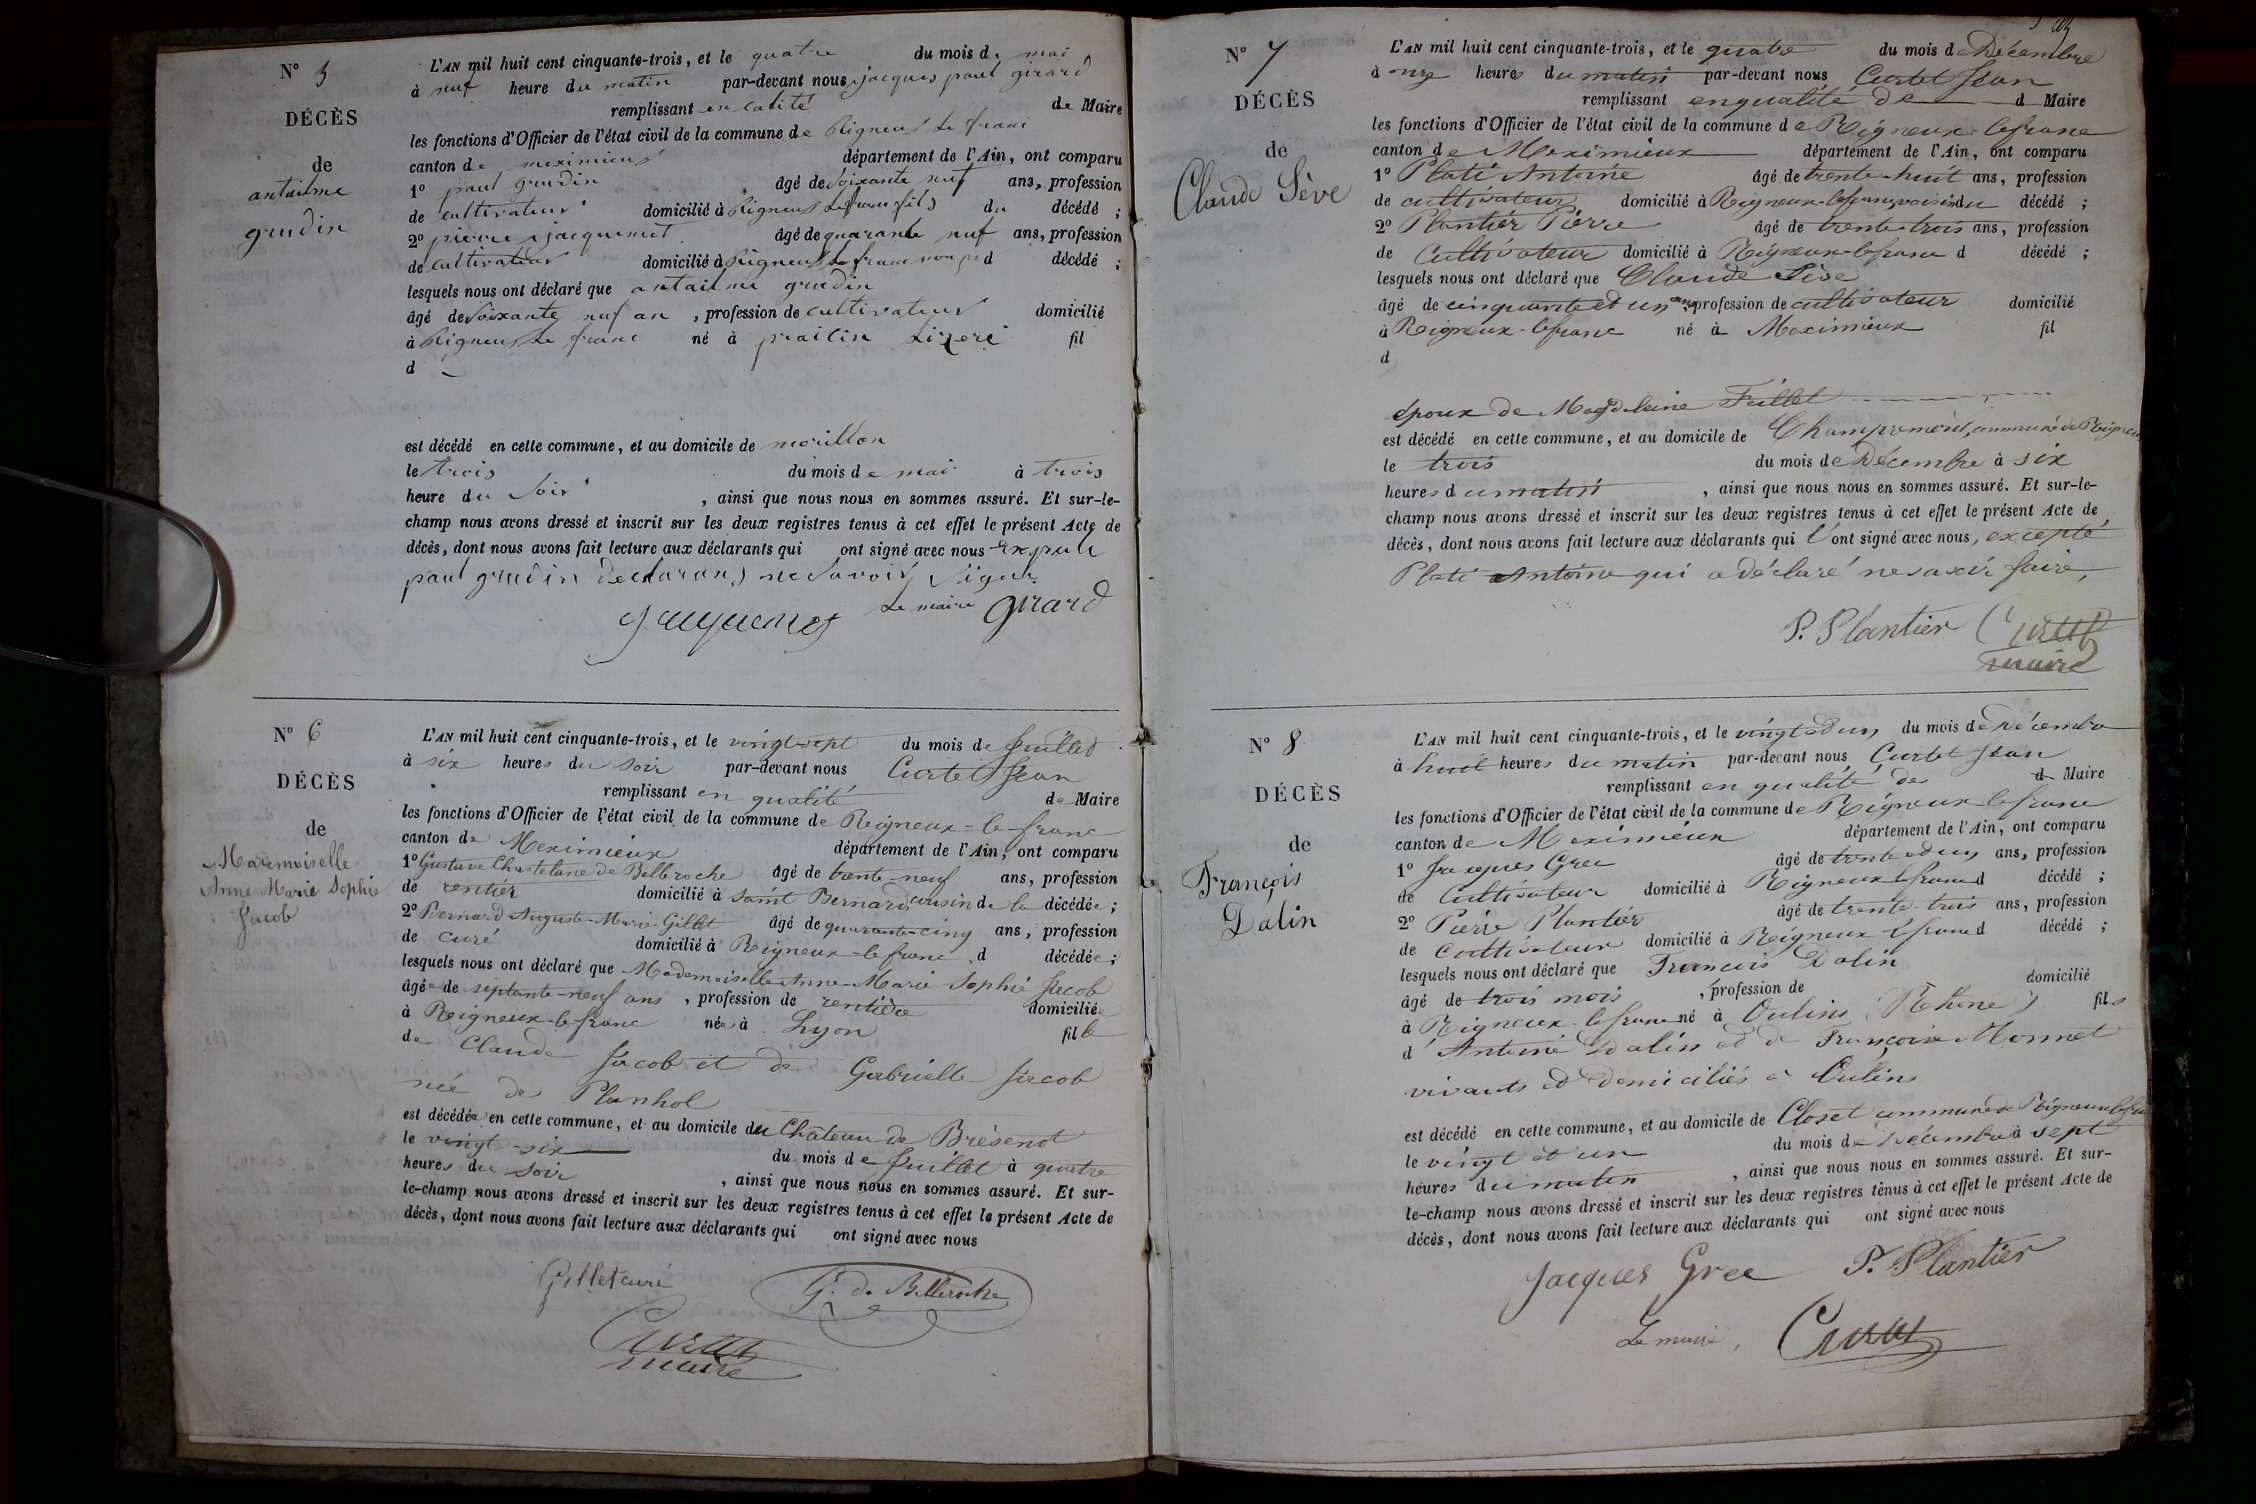 N° 5
DÉCÈS
de
antailme
grudin
L'AN mil huit cent cinquante-trois, et le quatre du mois de mai
à neuf heure du matin par-devant nous jacques paul girard
remplissant en calité de Maire
les fonctions d'Officier de l'état civil de la commune de Rigneus le franc
canton de meximieus département de l'Ain, ont comparu
1° paul grudin âgé de Soixante neuf ans, profession
de cultivateur domicilié à Rigneus Le franc fils du décédé ;
2° pierre jacquemet âgé de quarante neuf ans, profession
de cultivateur domicilié à Rigneus Le franc d décédé ;
lesquels nous ont déclaré que antailme grudin
âgé de Soixante neuf an , profession de cultivateur domicilié
à Rigneus Le franc né à fil
d
est décédé en cette commune, et au domicile de morillon
le trois du mois de mai à trois
heure du Soir , ainsi que nous nous en sommes assuré. Et sur-le-
champ nous avons dressé et inscrit sur les deux registres tenus à cet effet le présent Acte de
décès, dont nous avons fait lecture aux déclarants qui ont signé avec nous
paul grudin declarans ne Savoir Signer
Le maire girard
N° 6
DÉCÈS
de
Mademoiselle
Anne Marie Sophie
Jacob
L'AN mil huit cent cinquante-trois, et le vingt-sept du mois de Juillet
à six heures du soir par-devant nous Curtet Jean
remplissant en qualité de Maire
les fonctions d'Officier de l'état civil de la commune de Reigneux-le-franc
canton de Meximieux département de l'Ain, ont comparu
1° Gustave Chastelane de Belleroche âgé de trente-neuf ans, profession
de rentier domicilié à saint Bernard, cousin de la décédée ;
2° Bernard Auguste-Marie Gillet âgé de quarante-cinq ans, profession
de curé domicilié à Reigneux-le-franc d décédée ;
lesquels nous ont déclaré que Mademoiselle Anne-Marie Sophie Jacob
âgée de septante-neuf ans , profession de rentière domiciliée
à Reigneux-le-franc née à Lyon fille
de Claude Jacob et de Gabrielle Jacob
née de Planhol
est décédée en cette commune, et au domicile du Château de Brésenot
le vingt-six du mois de Juillet à quatre
heures du soir , ainsi que nous nous en sommes assuré. Et sur-
le-champ nous avons dressé et inscrit sur les deux registres tenus à cet effet le présent Acte de
décès, dont nous avons fait lecture aux déclarants qui ont signé avec nous
Gillet curé G. de Belleroche
Curtet
maire
N° 7
DÉCÈS
de
Claude Sève
L'AN mil huit cent cinquante-trois, et le quatre du mois de Décembre
à onze heures du matin par-devant nous Curtet Jean
remplissant en qualité de d Maire
les fonctions d'Officier de l'état civil de la commune de Reigneux-lefranc
canton de Meximieux département de l'Ain, ont comparu
1° Plati Antoine âgé de trente-huit ans, profession
de cultivateur domicilié à Reigneux-lefranc, voisin du décédé ;
2° Plantier Pierre âgé de trente-trois ans, profession
de Cultivateur domicilié à Reigneux-lefranc d décédé ;
lesquels nous ont déclaré que Claude Sève
âgé de cinquante et un ans, profession de cultivateur domicilié
à Reigneux-lefranc né à Meximieux fil
d
époux de Magdeleine Feillet
est décédé en cette commune, et au domicile de commune de Reigneux
le trois du mois de Décembre à six
heures du matin , ainsi que nous nous en sommes assuré. Et sur-le-
champ nous avons dressé et inscrit sur les deux registres tenus à cet effet le présent Acte de
décès, dont nous avons fait lecture aux déclarants qui l'ont signé avec nous, excepté
Plati Antoine qui a déclaré ne savoir faire,
P. Plantier Curtet
maire
N° 8
DÉCÈS
de
François
Dalin
L'AN mil huit cent cinquante-trois, et le vingt et un du mois de Décembre
à huit heures du matin par-devant nous Curtet Jean
remplissant en qualité de d Maire
les fonctions d'Officier de l'état civil de la commune de Reigneux-lefranc
canton de Meximieux département de l'Ain, ont comparu
1° Jacques Gree âgé de trente et un ans, profession
de Cultivateur domicilié à Reigneux-lefranc d décédé ;
2° Pierre Plantier âgé de trente-trois ans, profession
de cultivateur domicilié à Reigneux lefranc d décédé ;
lesquels nous ont déclaré que François Dalin
âgé de trois mois , profession de domicilié
à Reigneux-lefranc né à Oulins (Rhône) fils
d'Antoine Dalin et de Françoise Monnet
vivants et domiciliés à Oulins
est décédé en cette commune, et au domicile de Closet commune de Reigneux lefranc
le vingt et un du mois de Décembre à sept
heures du matin , ainsi que nous nous en sommes assuré. Et sur-
le-champ nous avons dressé et inscrit sur les deux registres tenus à cet effet le présent Acte de
décès, dont nous avons fait lecture aux déclarants qui ont signé avec nous
Jacques Gree P. Plantier
Le maire, Curtet